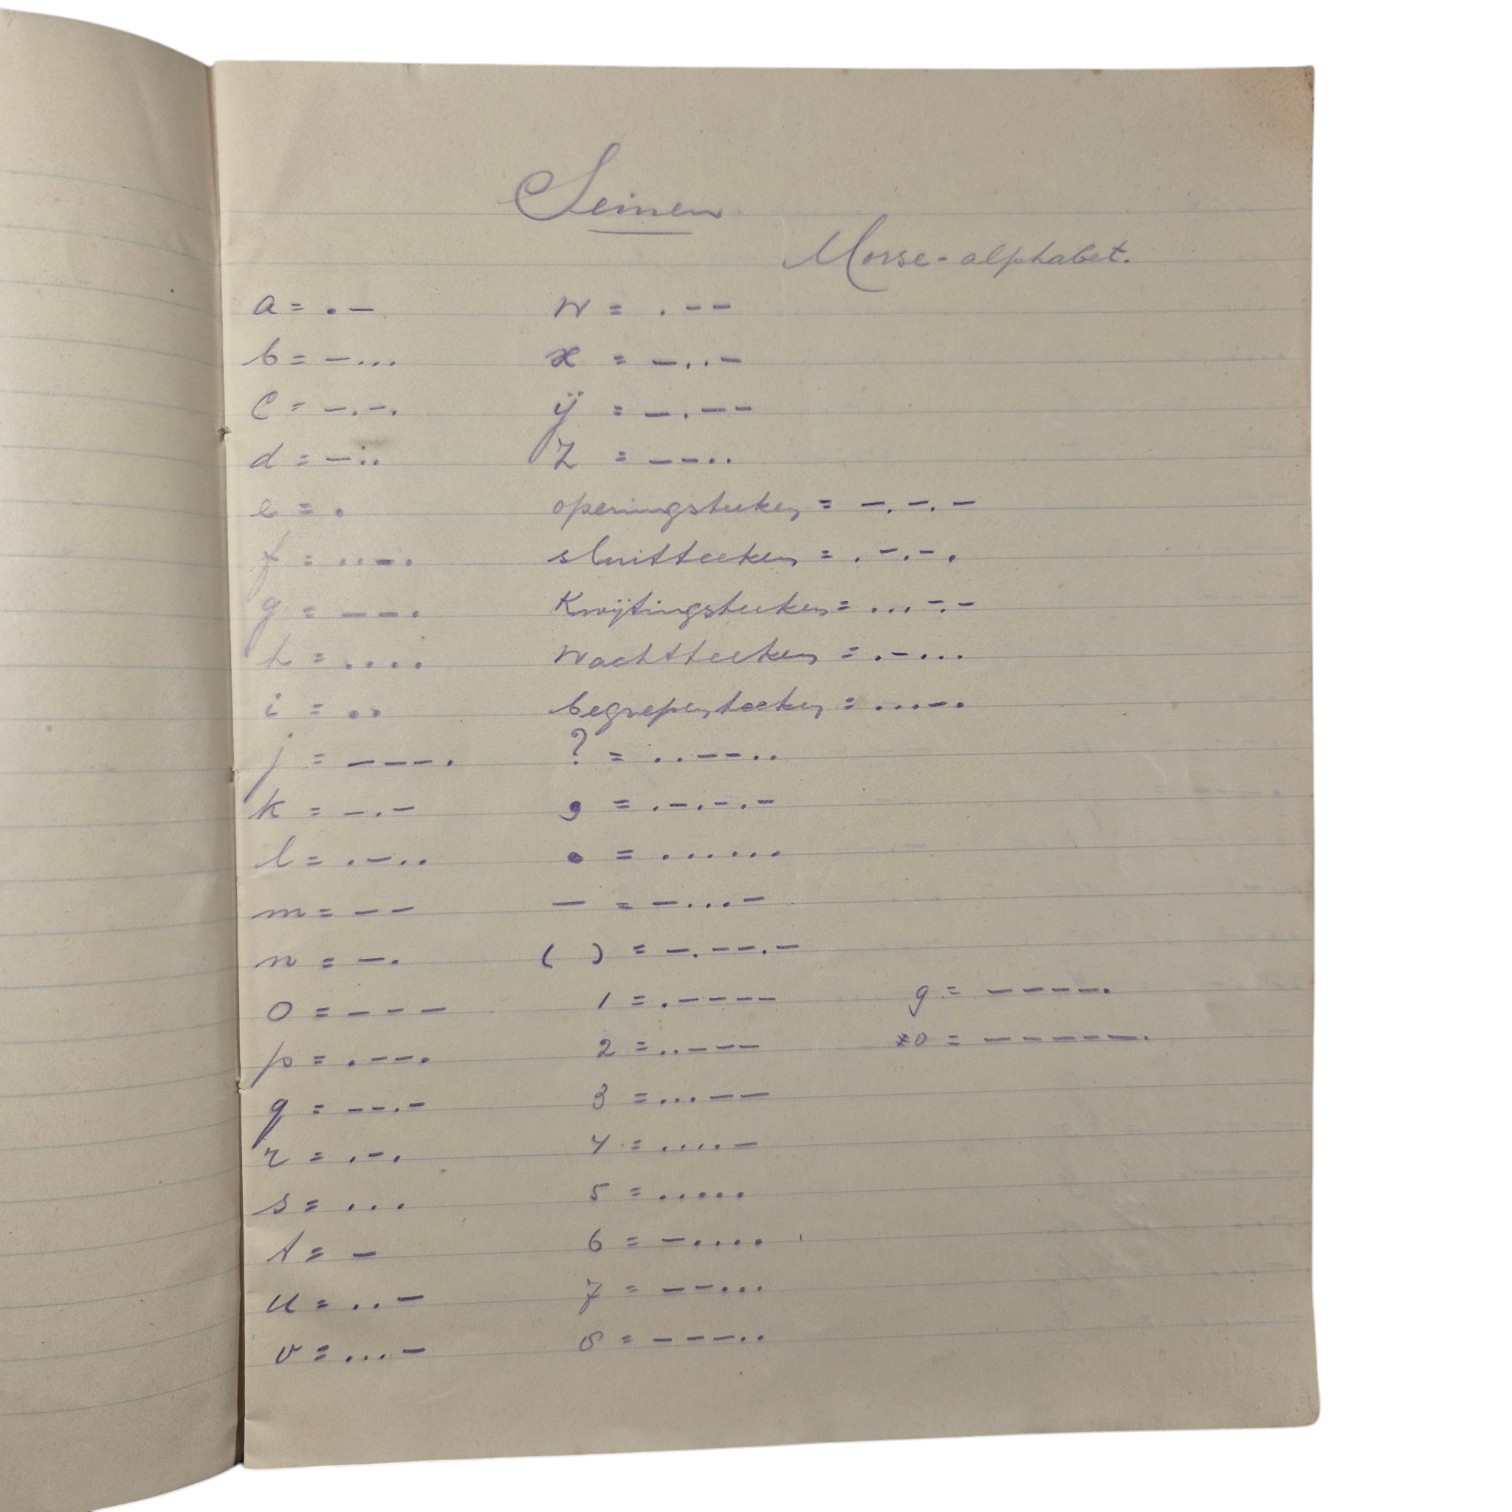 Seinen
Morse-alphabet.
a = . –
b = – . . .
c = – . – .
d = – . .
e = .
f = . . – .
g = – – .
h = . . . .
i = . .
j = – – – .
k = – . –
l = . – . .
m = – –
n = – .
o = – – –
p = . – – .
q = – – . –
r = . – .
s = . . .
t = –
u = . . –
v = . . . –
w = . – –
x = – . . –
ÿ = – . – –
z = – – . .
openingsteeken = – . – . –
sluitteeken = . – . – .
Kwijtingsteeken = . . . – . –
wachtteeken = . – . . .
begrepenteeken = . . . – .
? = . . – – . .
, = . – . – . –
. = . . . . . .
— = – . . . –
( ) = – . – – . –
1 = . – – – –
2 = . . – – –
3 = . . . – –
4 = . . . . –
5 = . . . . .
6 = – . . . .
7 = – – . . .
8 = – – – . .
9 = – – – – .
0 = – – – – – .